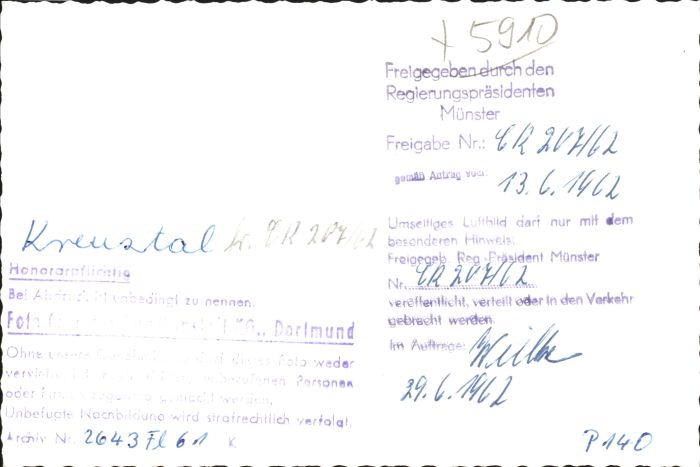 + 5910
Freigegeben durch den
Regierungspräsidenten
Münster
Freigabe Nr.: CR 207/62
gemäß Antrag vom: 13.6.1962
Umseitiges Luftbild darf nur mit dem
besonderen Hinweis:
Freigegeb. Reg.-Präsident Münster
Nr. CR 207/62
veröffentlicht, verteilt oder in den Verkehr
gebracht werden.
Im Auftrage:
29.6.1962
Kreuztal fr. CR 207/62
Honorarpflichtig
Bei Abdruck ist unbedingt zu nennen:
Foto KG., Dortmund
Ohne unsere Foto weder
Personen
oder werden.
Unbefugte Nachbildung wird strafrechtlich verfolgt.
Archiv Nr. 2643 Fl 61 K
P 140